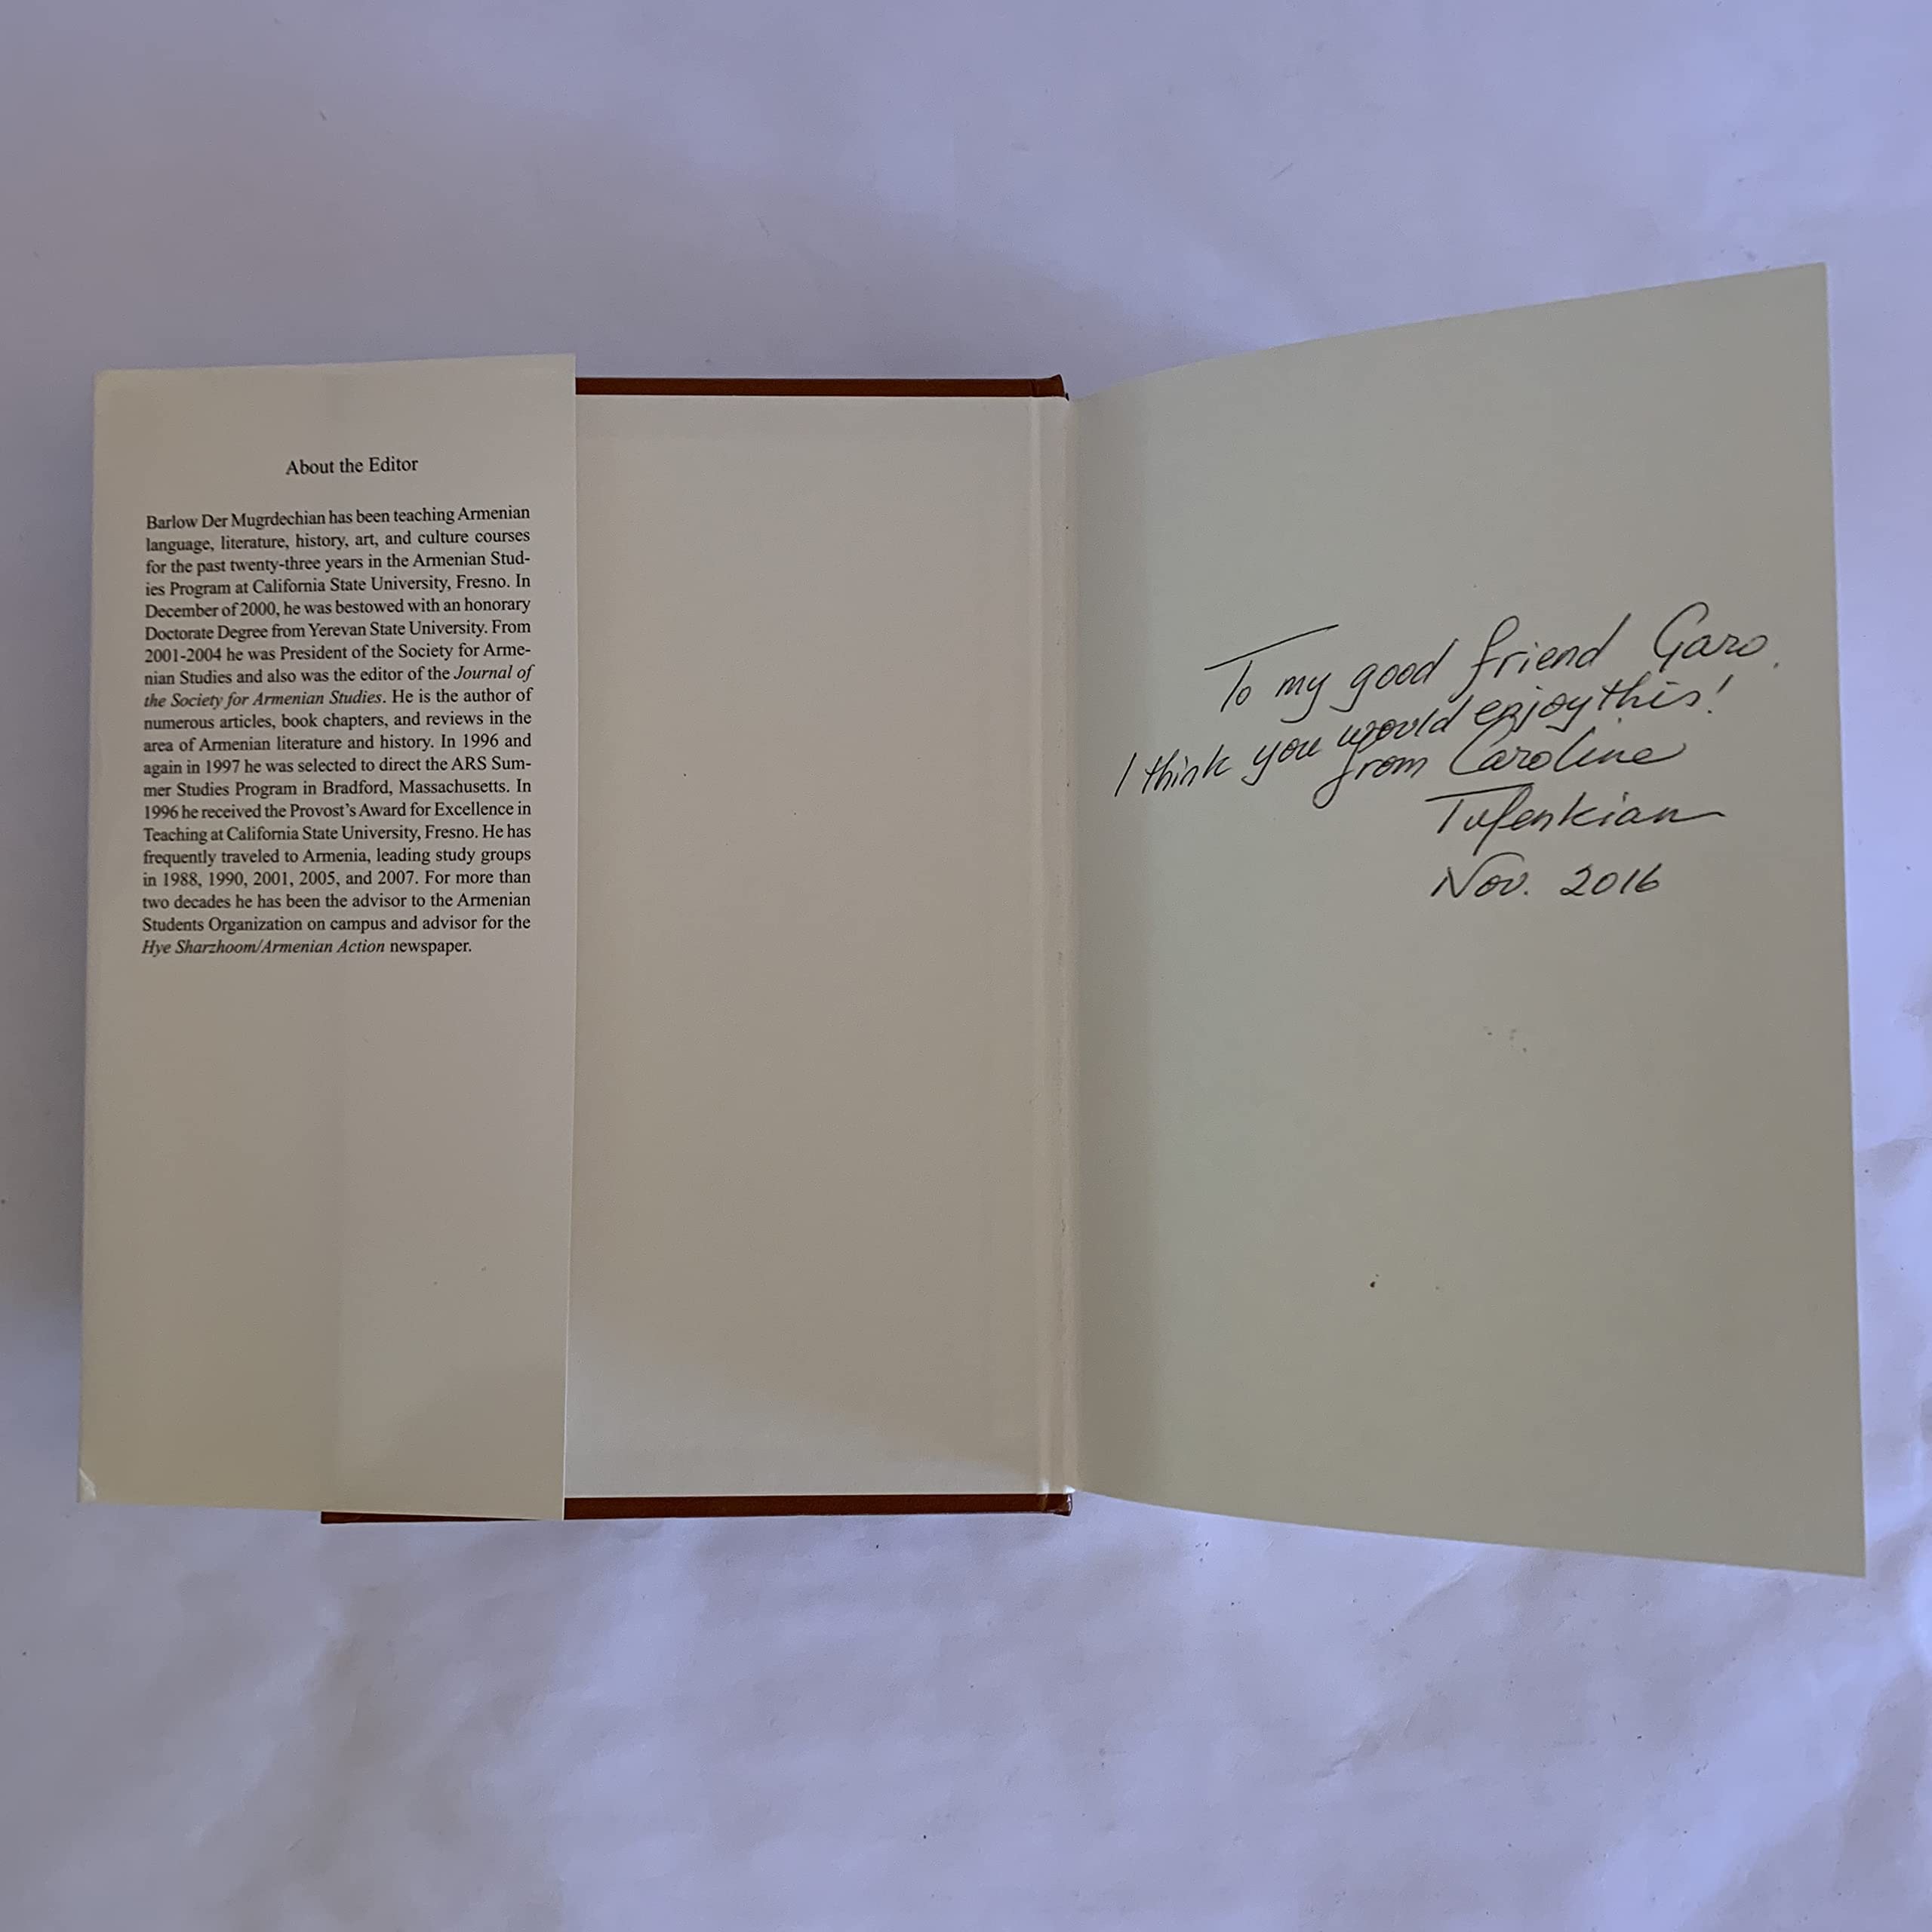 About the Editor
Barlow Der Mugrdechian has been teaching Armenian
language, literature, history, art, and culture courses
for the past twenty-three years in the Armenian Stud-
ies Program at California State University, Fresno. In
December of 2000, he was bestowed with an honorary
Doctorate Degree from Yerevan State University. From
2001-2004 he was President of the Society for Arme-
nian Studies and also was the editor of the Journal of
the Society for Armenian Studies. He is the author of
numerous articles, book chapters, and reviews in the
area of Armenian literature and history. In 1996 and
again in 1997 he was selected to direct the ARS Sum-
mer Studies Program in Bradford, Massachusetts. In
1996 he received the Provost's Award for Excellence in
Teaching at California State University, Fresno. He has
frequently traveled to Armenia, leading study groups
in 1988, 1990, 2001, 2005, and 2007. For more than
two decades he has been the advisor to the Armenian
Students Organization on campus and advisor for the
Hye Sharzhoom/Armenian Action newspaper.
To my good friend Garo.
I think you would enjoy this!
from Caroline
Tufenkian
Nov. 2016